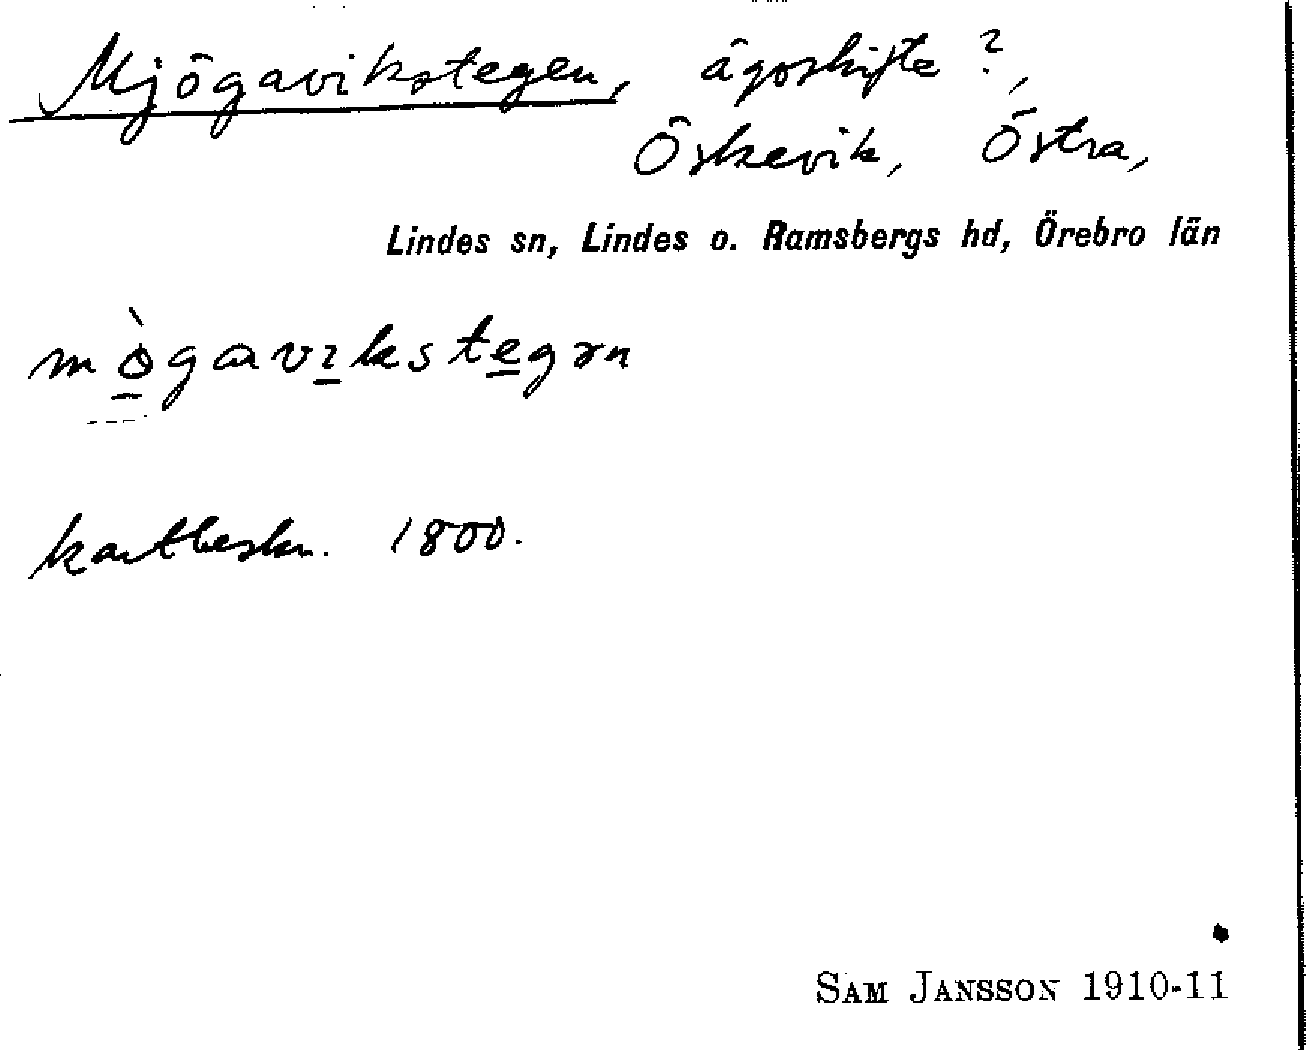 Mjögavikstegen, ägoskifte ?,
Öskevik, Östra,
Lindes sn, Lindes o. Ramsbergs hd, Örebro län
mògavikstegən
kartbeskr. 1800.
SAM JANSSON 1910-11